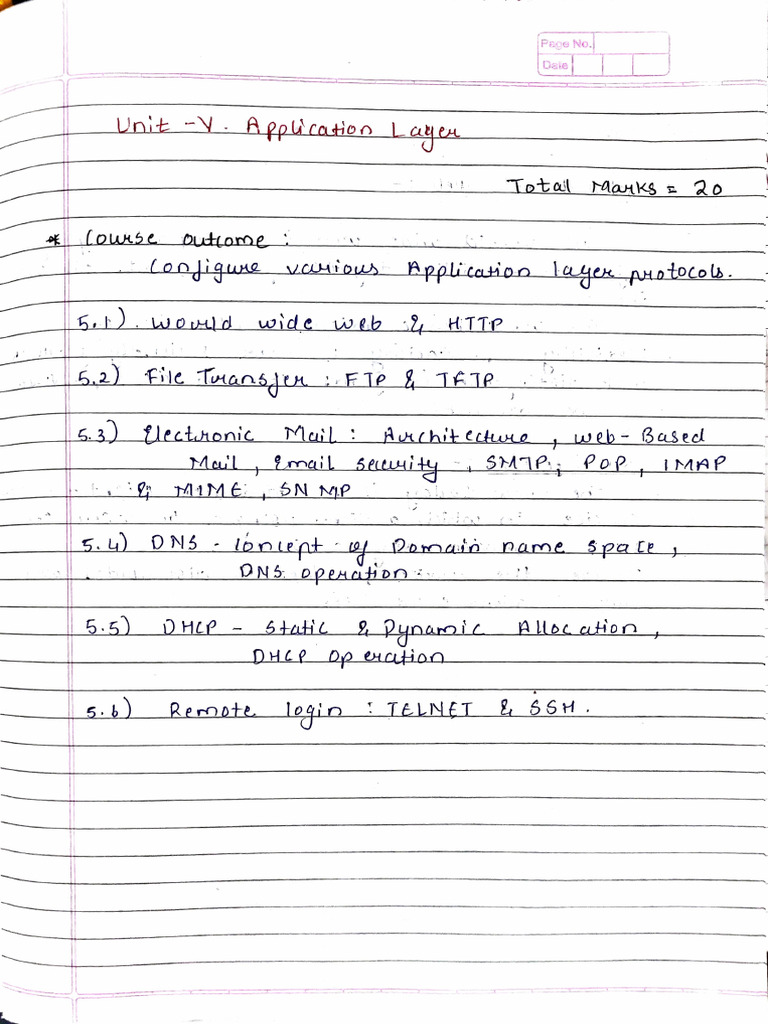 Page No.
Date
Unit - V. Application Layer
Total Marks = 20
* Course outcome :
Configure various Application layer protocols.
5.1) World wide web & HTTP
5.2) File Transfer : FTP & TFTP
5.3) Electronic Mail : Architecture, web-Based
Mail, Email security, SMTP, POP, IMAP
& MIME, SNMP
5.4) DNS - Concept of Domain name space,
DNS operation
5.5) DHCP - Static & Dynamic Allocation,
DHCP Operation
5.6) Remote login : TELNET & SSH.